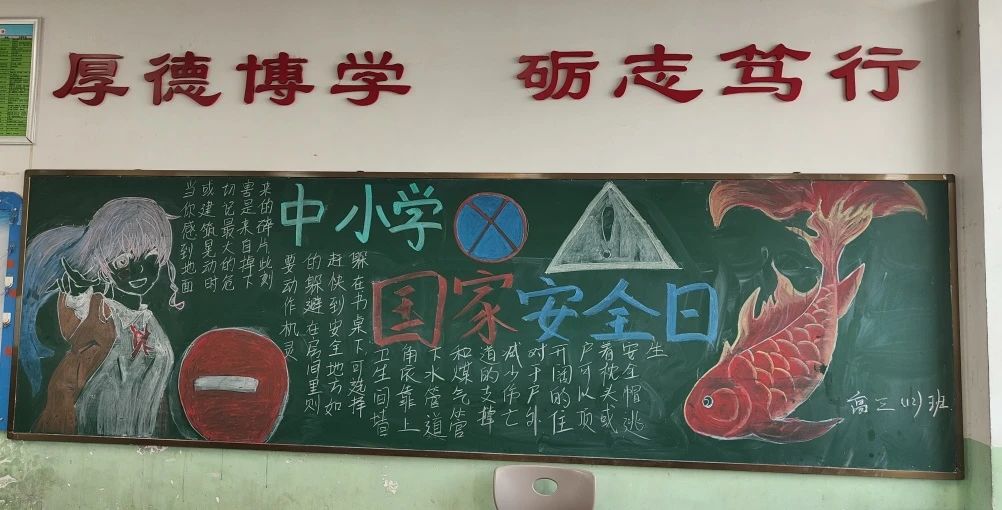 厚德博学 砺志笃行
中小学
国家安全日
当你感到地面
或建筑晃动时
切记最大的危
害是来自掉下
来的碎片此刻
要动作机灵
的躲避在房间里则
赶快到安全地方如
躲在书桌下可选择
卫生间墙
角依靠上
下水管道
和煤气管
道的支撑
减少伤亡
对于户外
开阔的住
户可以顶
着枕头或
安全帽逃
生
高三(12)班